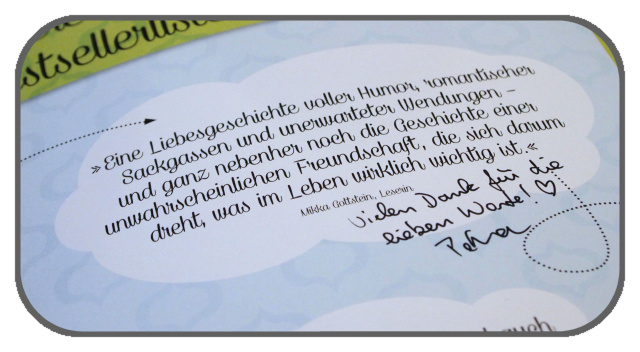 »Eine Liebesgeschichte voller Humor, romantischer
Sackgassen und unerwarteter Wendungen –
und ganz nebenher noch die Geschichte einer
unwahrscheinlichen Freundschaft, die sich darum
dreht, was im Leben wirklich wichtig ist.«
Mikka Gottstein, Leserin
Vielen Dank für die
lieben Worte! ♡
Petra
auch